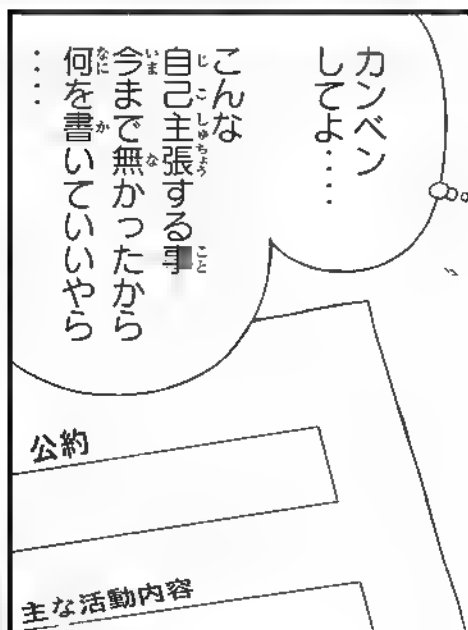 カンベン
してよ‥‥
こんな
自己主張する事
今まで無かったから
何を書いていいやら
‥‥
公約
主な活動内容